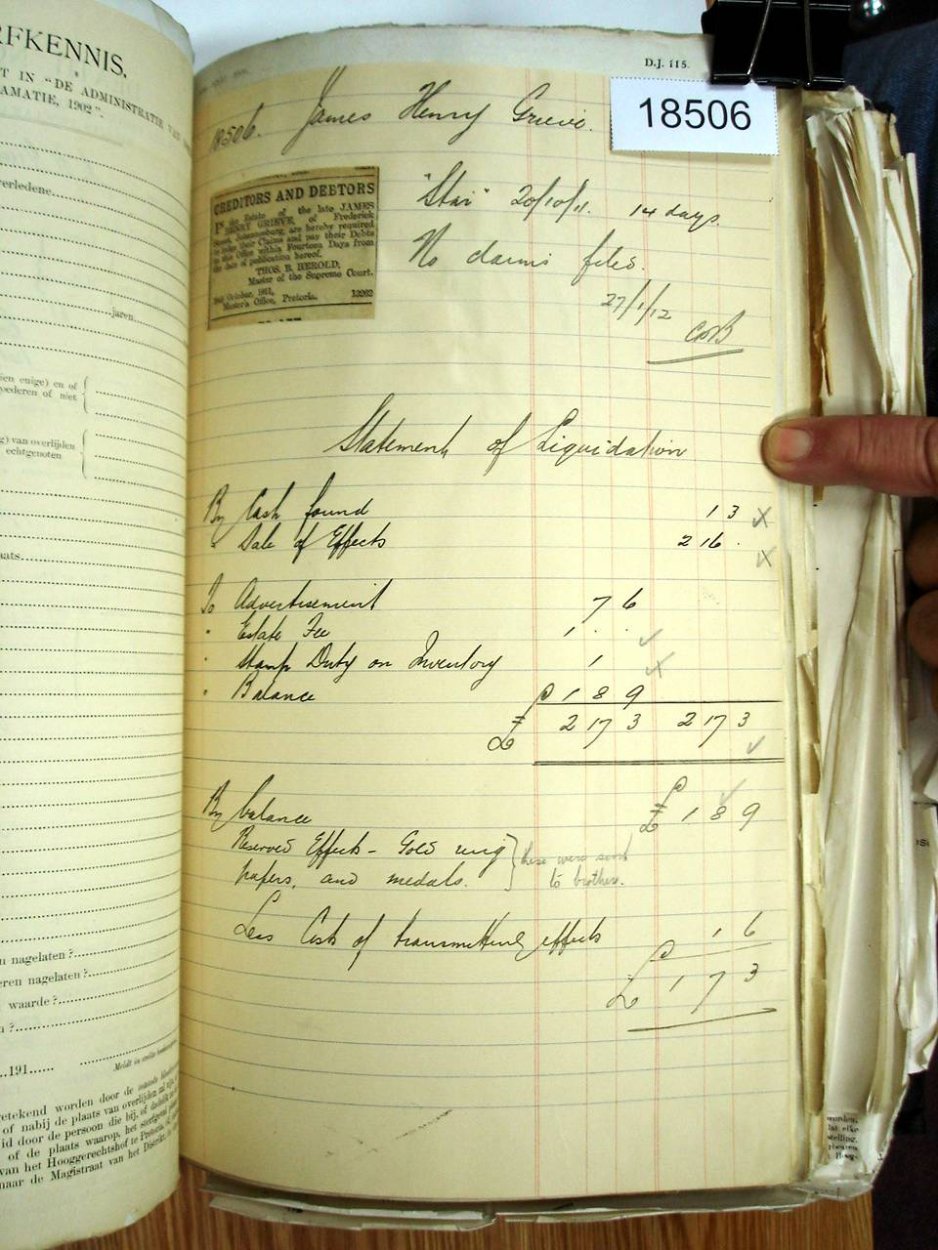 RFKENNIS.
T IN "DE ADMINISTRATIE
AMATIE, 1902".
verledene
jaren
ien enige) en of
oederen of niet
g) van overlijden
echtgenoten
aats
n nagelaten?
eren nagelaten?
waarde?
n?
191
etekend worden door de
of nabij de plaats van overlijden
id door de persoon die bij, of
of de plaats waarop, het
van het Hooggerechtshof te Pretoria
naar de Magistraat van het Distrikt
D.J. 115.
18506
18506. James Henry Grieve.
CREDITORS AND DEBTORS
In the Estate of the late JAMES
HENRY GRIEVE, of Frederick
Street, Johannesburg, are hereby required
to lodge their Claims and pay their Debts
at this Office within Fourteen Days from
the date of publication hereof.
THOS. B. HEROLD,
Master of the Supreme Court.
October, 1911.
Master's Office, Pretoria. 13262
"Star" 20/10/11. 14 days.
No claims filed.
27/1/12
Statement of Liquidation
By Cash found 1 3
" Sale of Effects 2 16 .
To Advertisement 7 6
" Estate Fee 1 . .
" Stamp Duty on Inventory 1
" Balance 1 8 9
£ 2 17 3 2 17 3
By balance £ 1 8 9
Reserved Effects - Gold ring
papers, and medals.
these were sent
to brother.
Less Costs of transmitting effects 1 6
£ 1 7 3